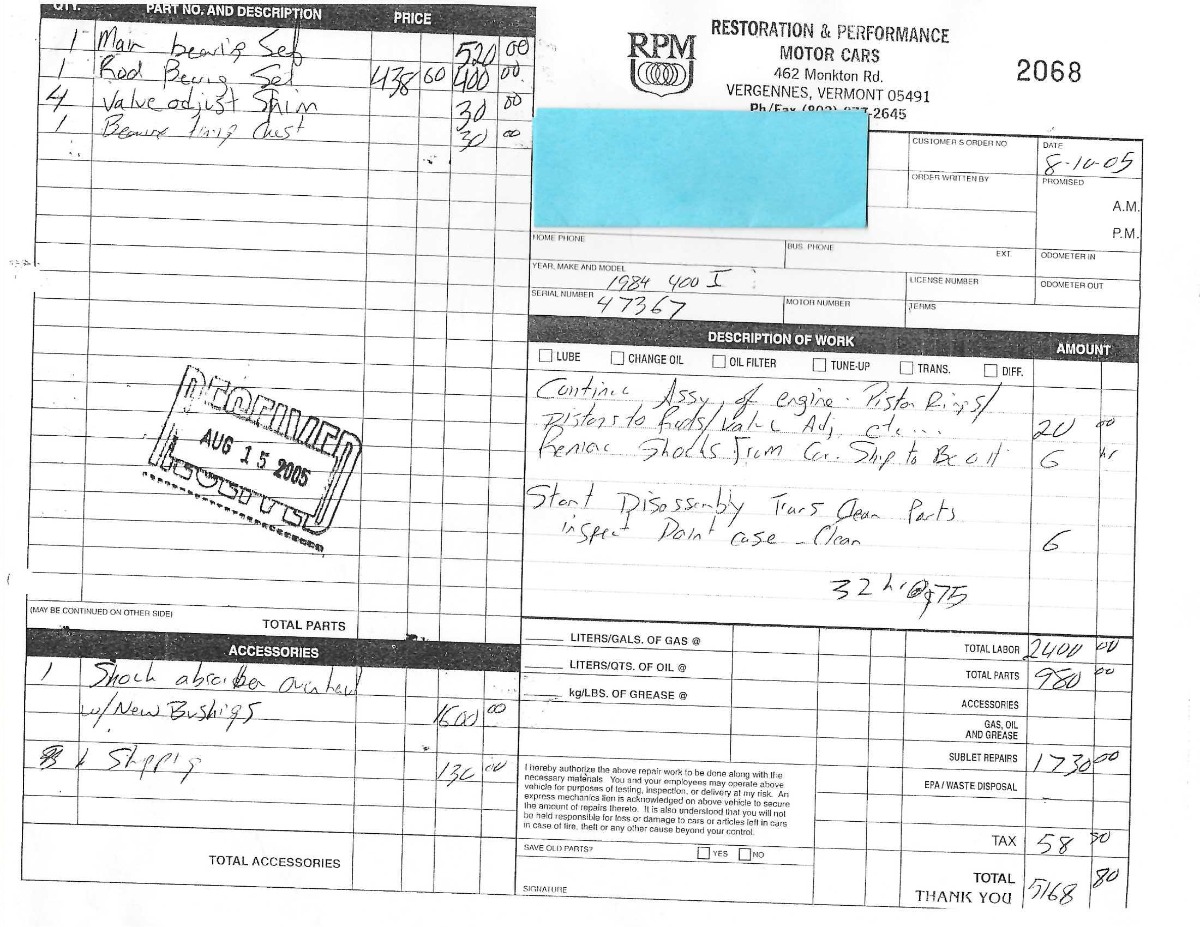 QTY. PART NO. AND DESCRIPTION PRICE
1 Main bearing Set 520 00
1 Rod Bearing Set 438 60 400 00
4 Valve adjust Shim 30 00
1 30 00
AUG 15 2005
(MAY BE CONTINUED ON OTHER SIDE)
TOTAL PARTS
ACCESSORIES
1 Shock absorber overhaul
w/New Bushings 1600 00
Shipping 130 00
TOTAL ACCESSORIES
RPM
RESTORATION & PERFORMANCE
MOTOR CARS
462 Monkton Rd.
VERGENNES, VERMONT 05491
Ph/Fax (802) 877-2645
2068
CUSTOMER'S ORDER NO.
DATE
8-10-05
ORDER WRITTEN BY
PROMISED
A.M.
P.M.
HOME PHONE
BUS. PHONE
EXT.
ODOMETER IN
YEAR, MAKE AND MODEL
1984 400 I
LICENSE NUMBER
ODOMETER OUT
SERIAL NUMBER
47367
MOTOR NUMBER
TERMS
DESCRIPTION OF WORK AMOUNT
LUBE CHANGE OIL OIL FILTER TUNE-UP TRANS. DIFF.
Continue Assy of engine. Piston Rings/
Pistons to Rods/Valve Adj, etc... 20 00
Remove Shocks From Car. Ship to 6 hr
Start Disassembly Trans Clean Parts
inspect Paint case - Clean 6
32 hr @ 75
LITERS/GALS. OF GAS @
LITERS/QTS. OF OIL @
kg/LBS. OF GREASE @
TOTAL LABOR 2400 00
TOTAL PARTS 980 00
ACCESSORIES
GAS, OIL
AND GREASE
SUBLET REPAIRS 1730 00
EPA / WASTE DISPOSAL
TAX 58 80
TOTAL 5168 80
THANK YOU
I hereby authorize the above repair work to be done along with the
necessary materials. You and your employees may operate above
vehicle for purposes of testing, inspection, or delivery at my risk. An
express mechanics lien is acknowledged on above vehicle to secure
the amount of repairs thereto. It is also understood that you will not
be held responsible for loss or damage to cars or articles left in cars
in case of fire, theft or any other cause beyond your control.
SAVE OLD PARTS? YES NO
SIGNATURE